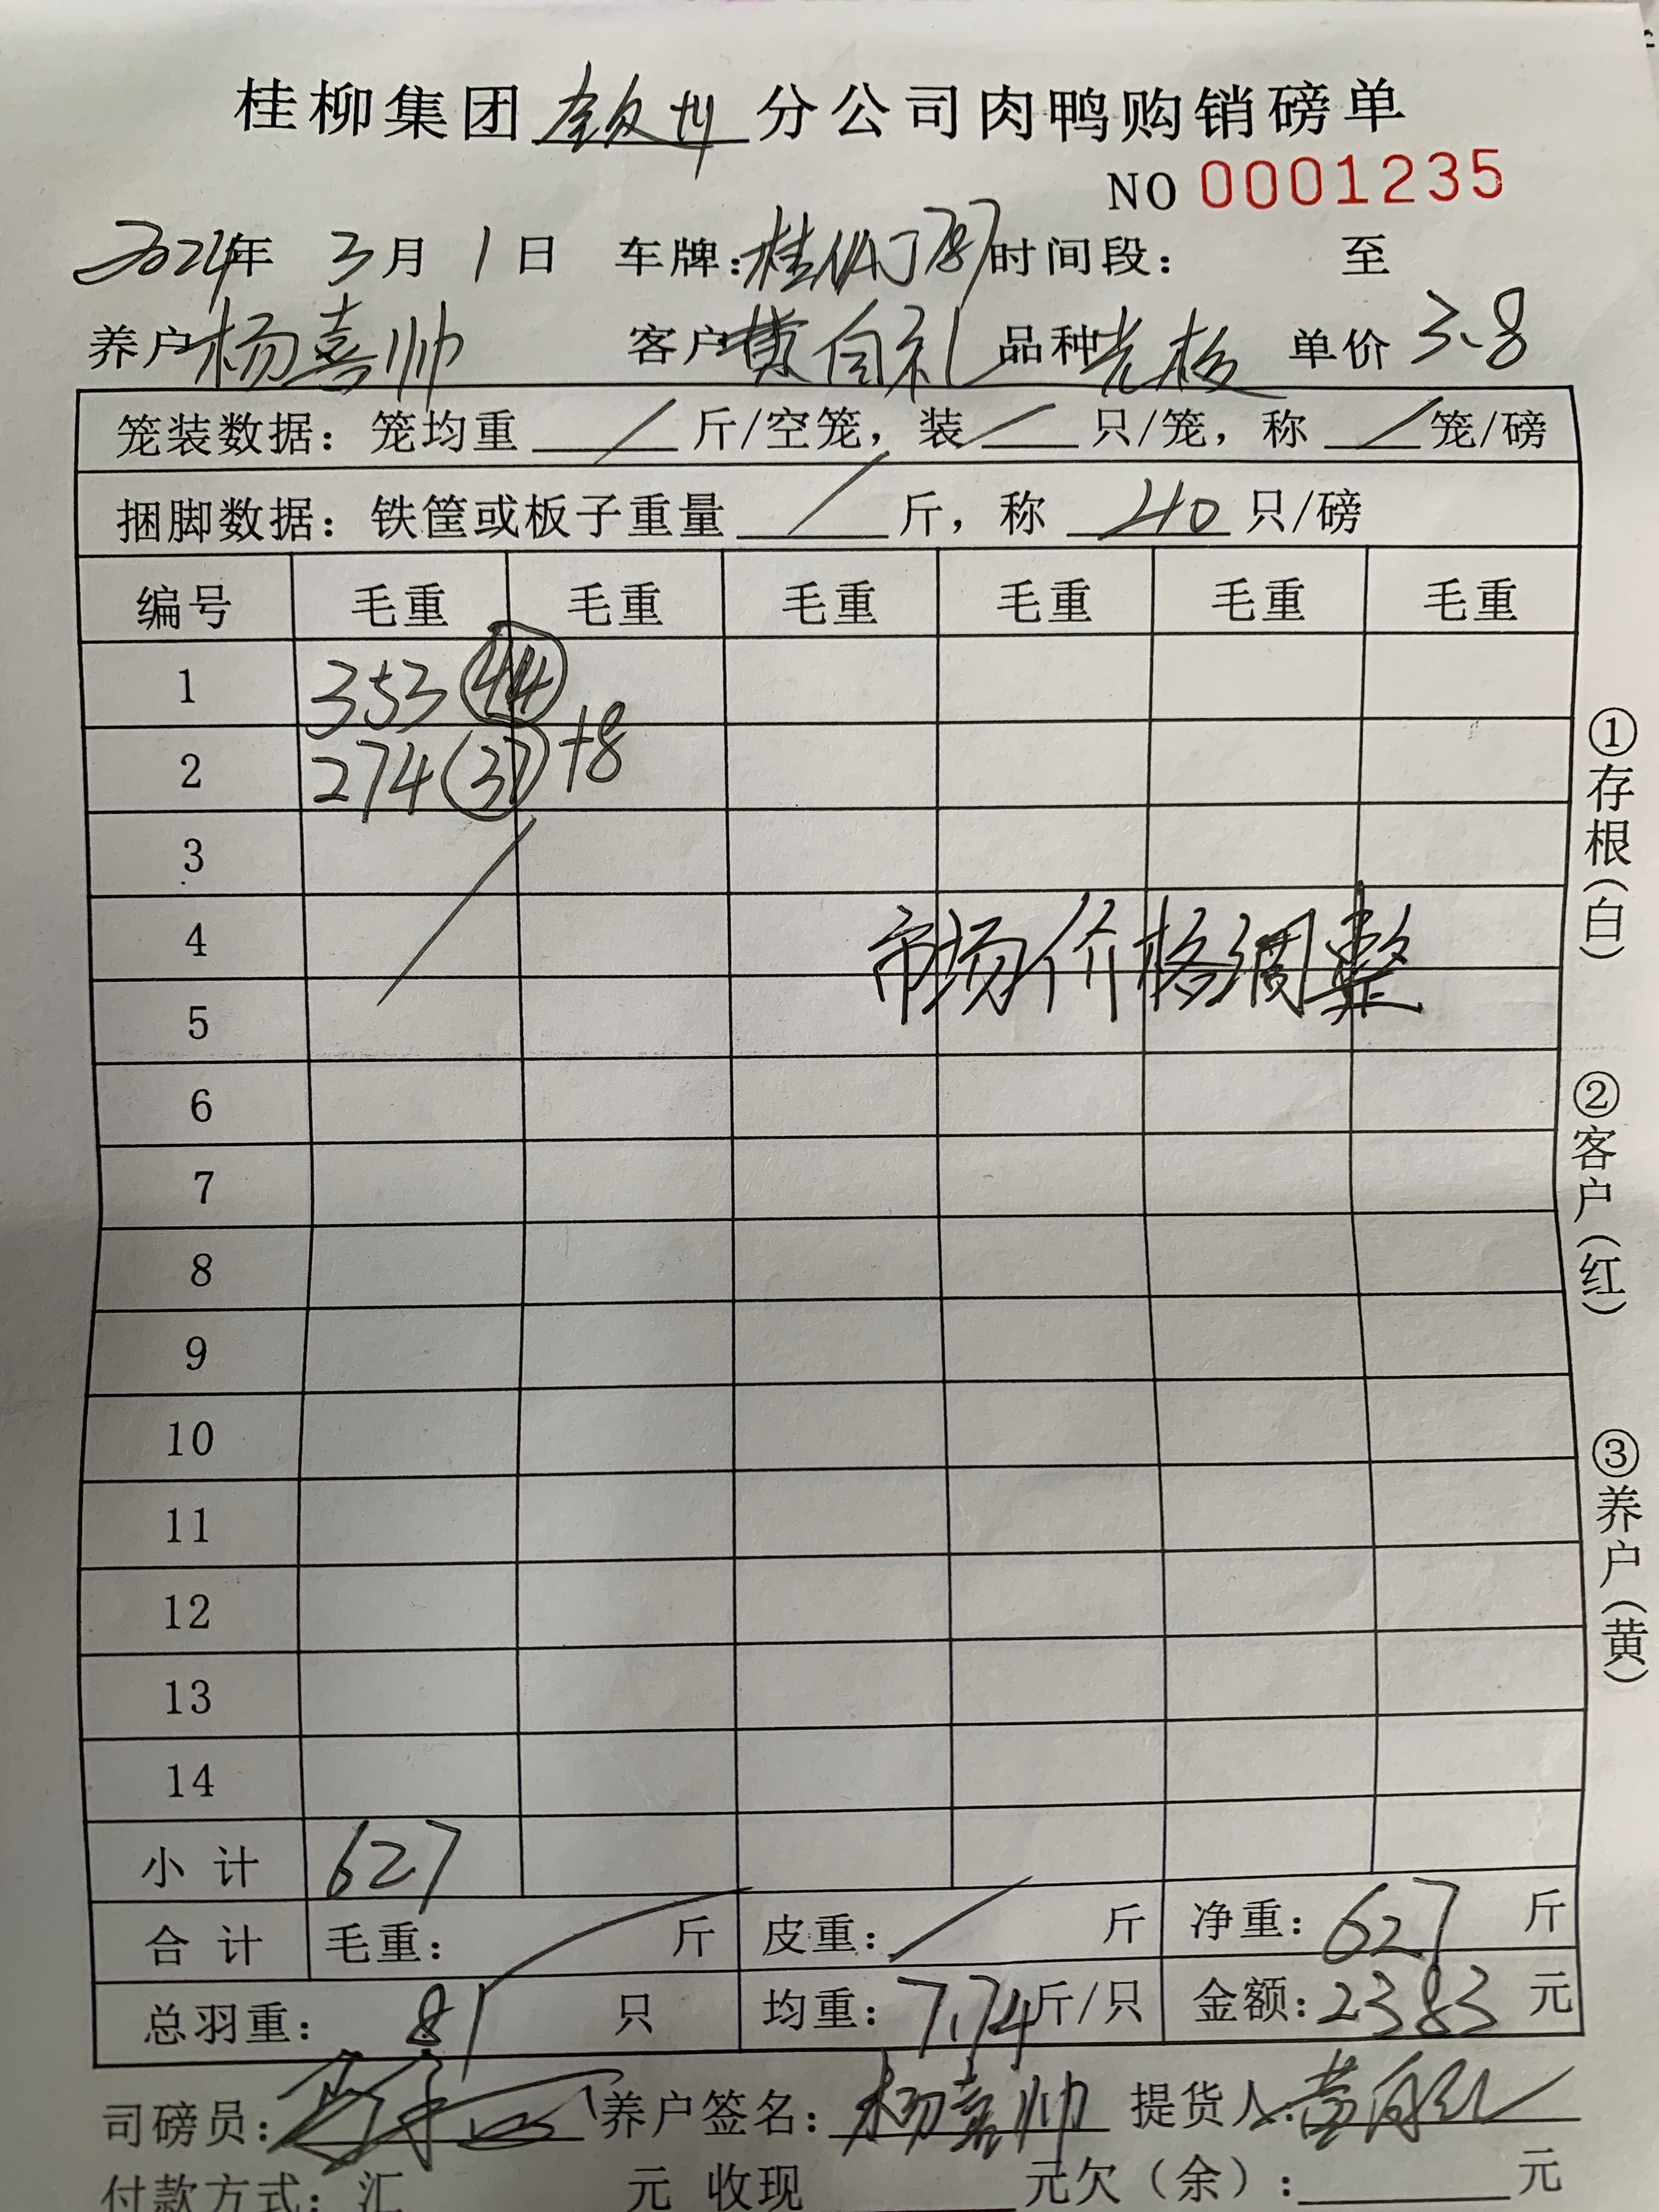 桂柳集团钦州分公司肉鸭购销磅单
NO 0001235
2024年 3月 1日 车牌: 时间段: 至
养户 杨喜帅 客户 黄自礼 品种 老板 单价 3.8
笼装数据: 笼均重 / 斤/空笼, 装 / 只/笼, 称 / 笼/磅
捆脚数据: 铁筐或板子重量 / 斤, 称 40 只/磅
编号 毛重 毛重 毛重 毛重 毛重 毛重
1 353 (44)
2 274 (37) +8
3
4
市场价格调整
5
6
7
8
9
10
11
12
13
14
小计 627
合计 毛重: 斤 皮重: / 斤 净重: 627 斤
总羽重: 81 只 均重: 7.74 斤/只 金额: 2383 元
司磅员: 养户签名: 杨喜帅 提货人:
付款方式: 汇 元 收现 元欠(余): 元
①存根(白)
②客户(红)
③养户(黄)